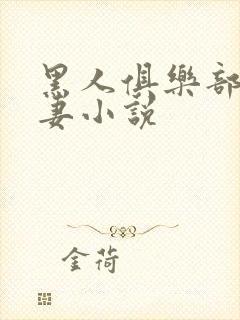 黑人俱樂部
妻小說
金荷